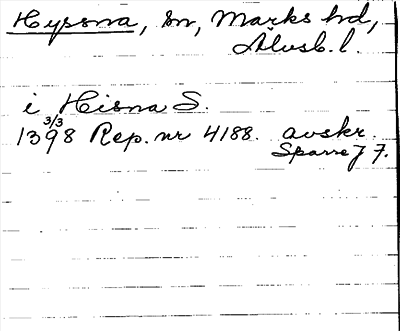 Hyssna, sn, Marks hd,
Älvsb. l.
i Hisna S.
1398 3/3 Rep. nr 4188. avskr.
Sparre 7 F.